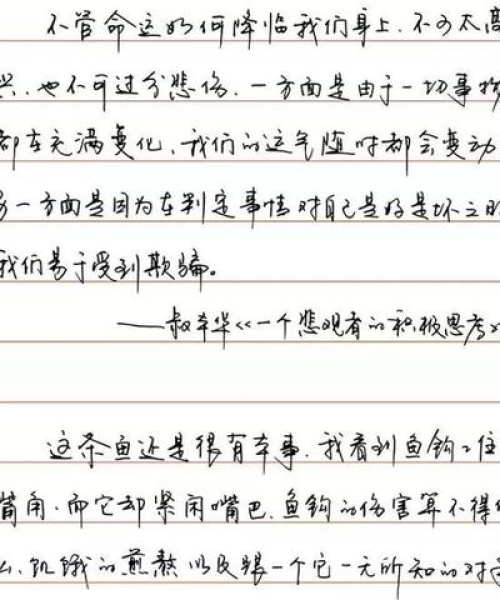 不管命运如何降临我们身上.不可太高
兴.也不可过分悲伤.一方面是由于一切事物
都在充满变化、我们的运气随时都会变动
另一方面是因为在判定事情对自己是好是坏之时
我们易于受到欺骗。
——叔本华<<一个悲观者的积极思考>
这条鱼还是很有本事.我看到鱼钩钩住
嘴角.而它却紧闭嘴巴.鱼钩的伤害算不得什
么.饥饿的煎熬以及跟一个它一无所知的对手